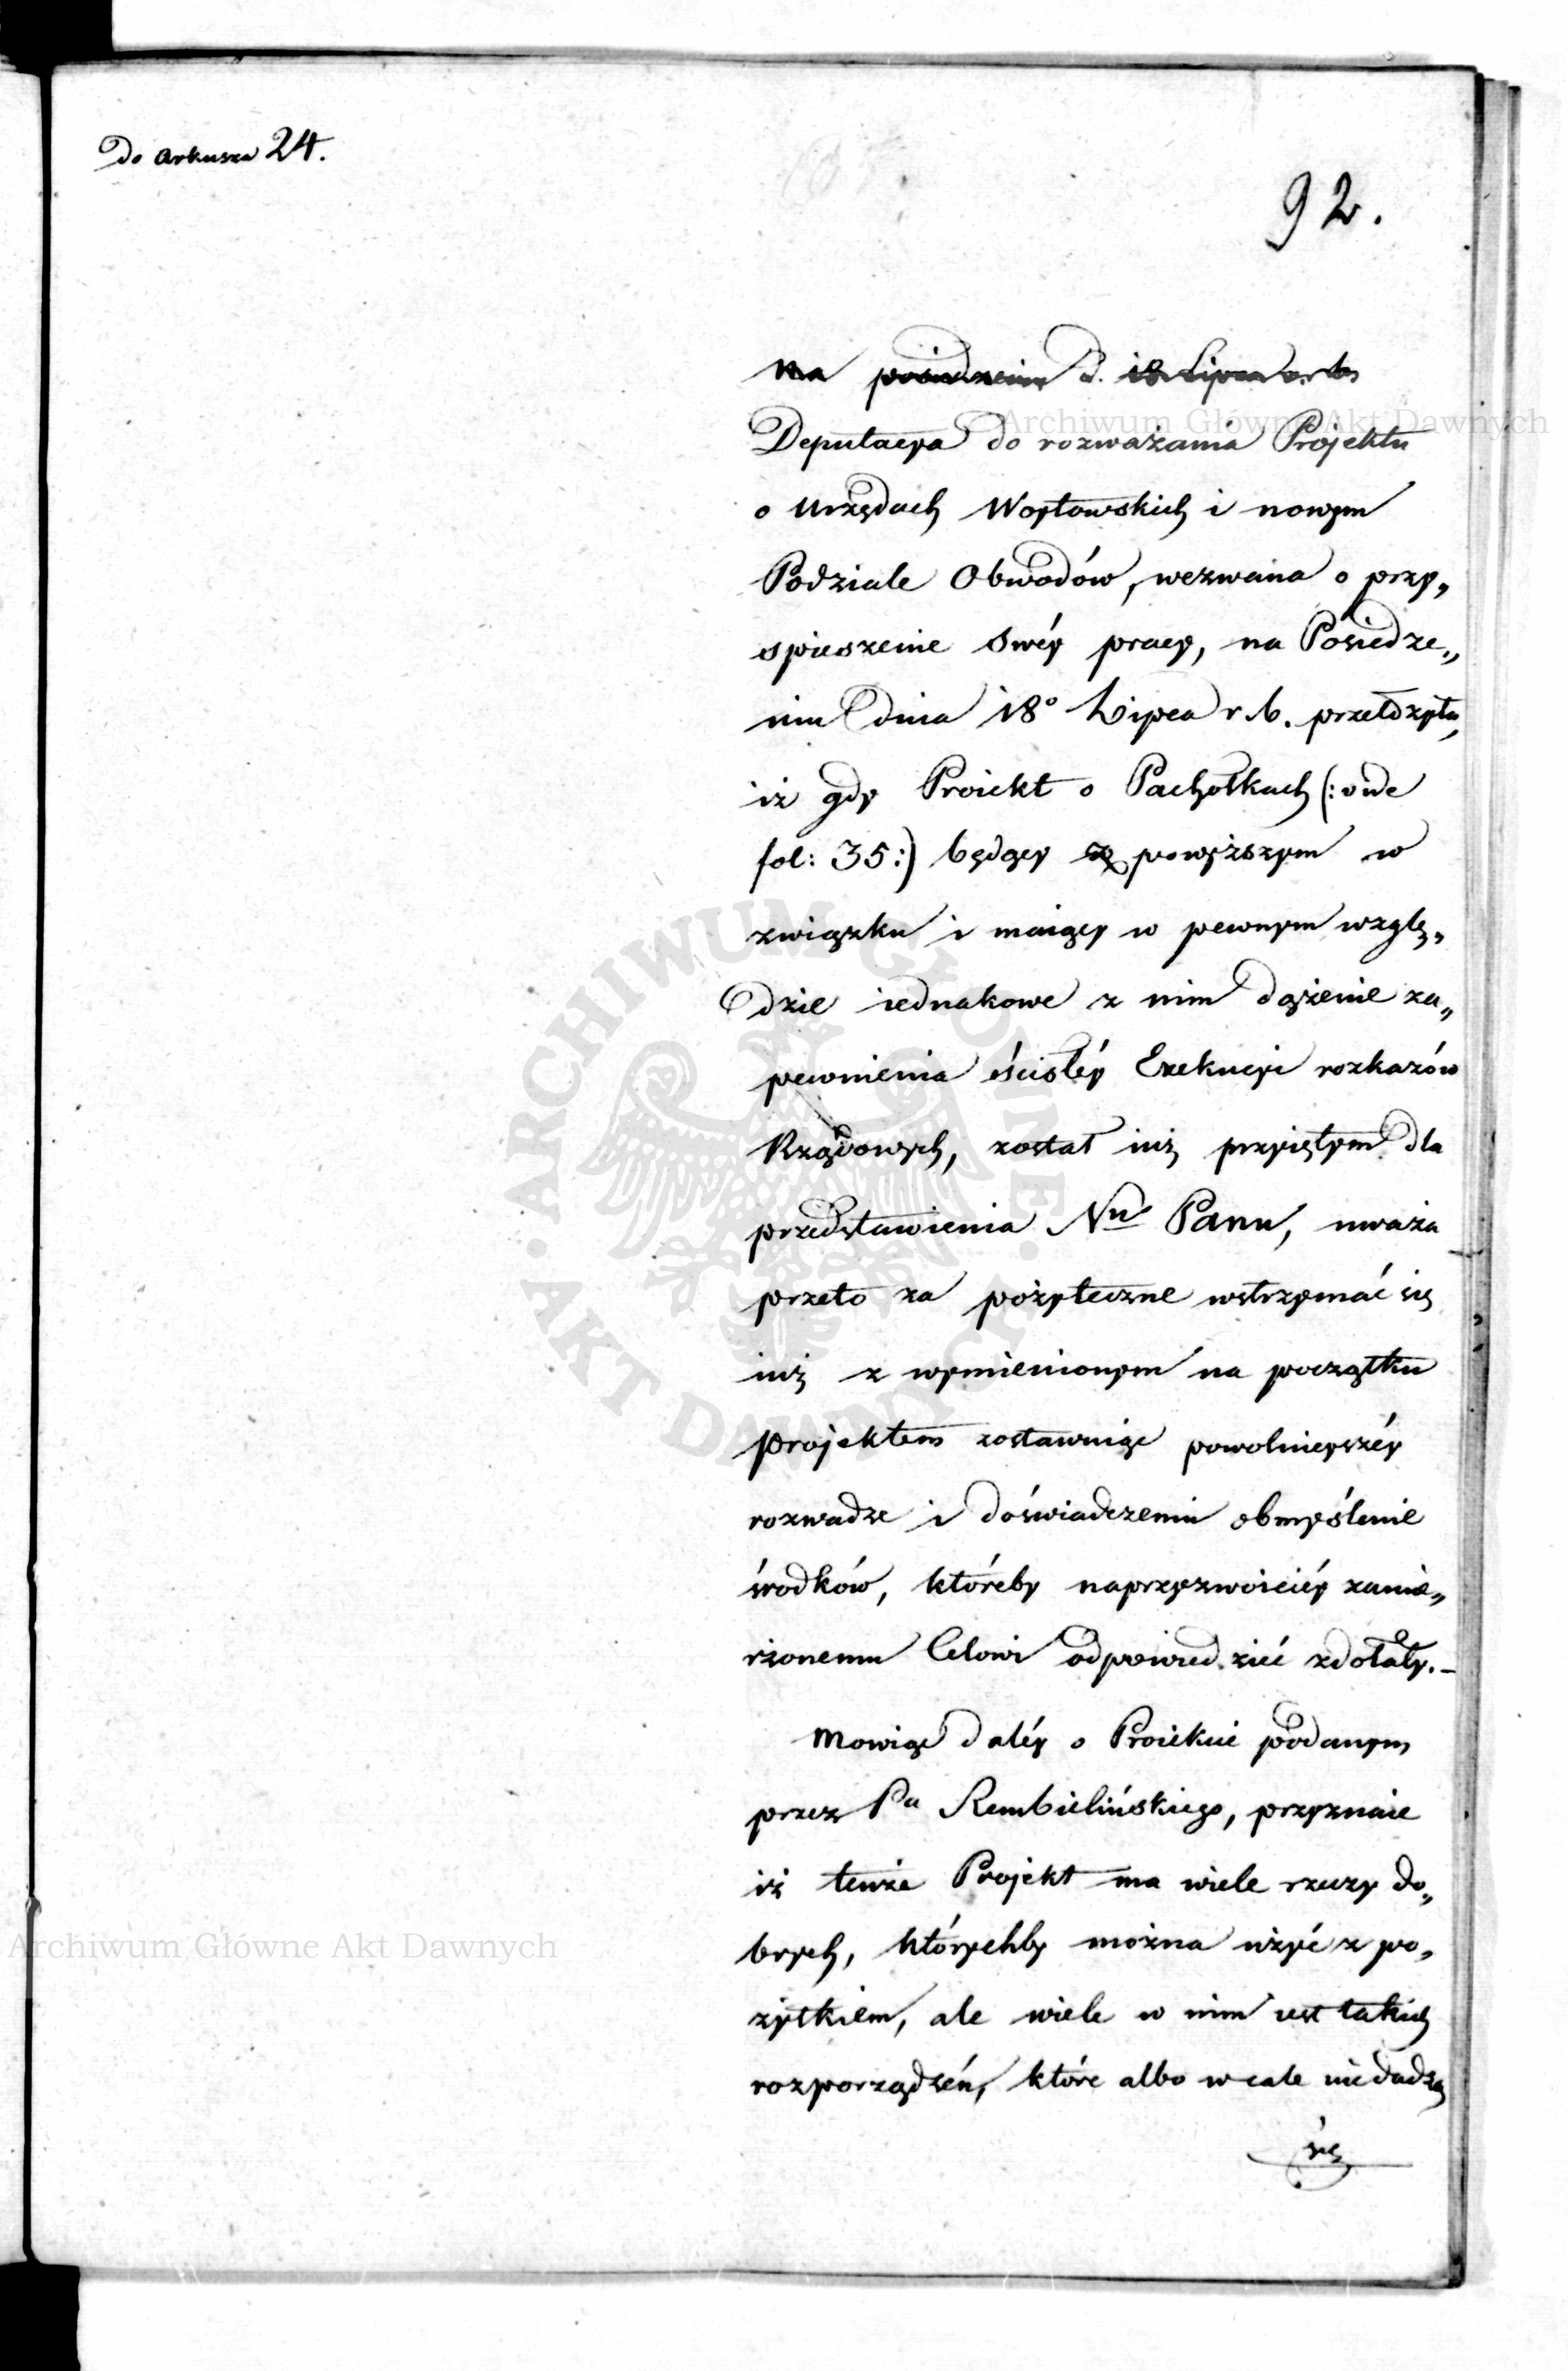 Do Arkusza 24.
92.
Na posiedzeniu d. 18 Lipca r. b.
Deputacya do rozważania Projektu
o Urzędach Woytowskich i nowym
Podziale Obwodów, wezwana o przy„
spieszenie swéy pracy, na Posiedze„
niu dnia 18º Lipca r. b. przełożyła,
iż gdy Proiekt o Pachołkach (: vide
fol: 35 :) będący z powyższym w
związku i maiący w pewnym wzglę„
dzie iednakowe z nim dążenie za„
pewnienia ścisłéy Exekucyi rozkazów
Rządowych, został iuż przyiętym dla
przedstawienia Nu Panu, uważa
przeto za pożyteczne wstrzymać się
iuż z wymienionym na początku
Projektem zostawuiąc powolnieyszéy
rozwadze i doświadczeniu obmyślenie
środków, któreby naprzyzwoiciéy zamie„
rzonemu Celowi odpowiedzieć zdołały.–
Mowiąc daléy o Proiekcie podanym
przez Pa Rembielińskiego, przyznaie
iż tenże Projekt ma wiele rzeczy do„
brych, którychby można użyć z po„
żytkiem, ale wiele w nim iest takich
rozporządzéń, które albo wcale niedadzą
się
Archiwum Główne Akt Dawnych
Archiwum Główne Akt Dawnych
ARCHIWUM GŁÓWNE · AKT DAWNYCH ·